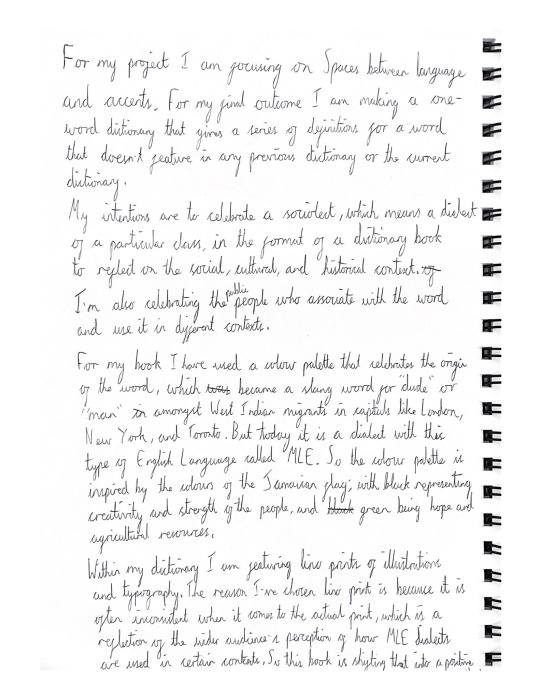 For my project I am focusing on Spaces between language
and accents. For my final outcome I am making a one-
word dictionary that gives a series of definitions for a word
that doesn't feature in any previous dictionary or the current
dictionary.
My intentions are to celebrate a sociolect, which means a dialect
of a particular class, in the format of a dictionary book
to reflect on the social, cultural, and historical context. of
I'm also celebrating the public people who associate with the word
and use it in different contexts.
For my book I have used a colour palette that celebrates the origin
of the word, which was became a slang word for "dude" or
"man" in amongst West Indian migrants in capitals like London,
New York, and Toronto. But today it is a dialect with this
type of English Language called MLE. So the colour palette is
inspired by the colours of the Jamaican flag; with black representing
creativity and strength of the people, and black green being hope and
agricultural resources.
Within my dictionary I am featuring lino prints of illustrations
and typography. The reason I've chosen lino print is because it is
often inconsistent when it comes to the actual print, which is a
reflection of the wider audience's perception of how MLE dialects
are used in certain contexts. So this book is shifting that into a positive